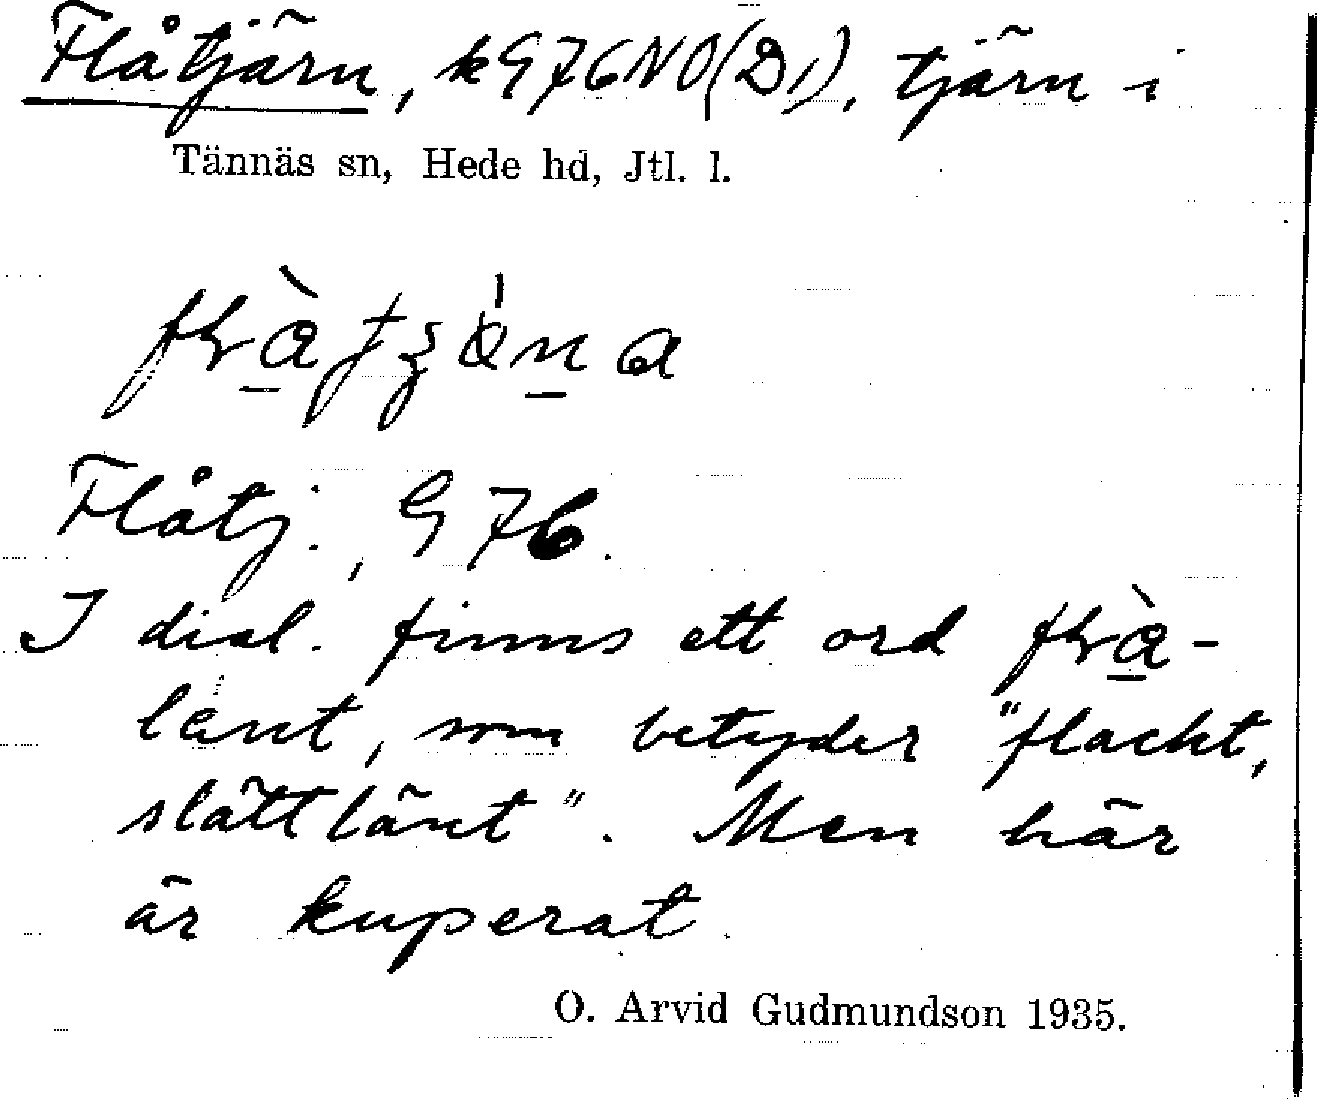 Flåtjärn, k G76NO(D1), tjärn i
Tännäs sn, Hede hd, Jtl. l.
Flåtj., G 76.
I dial. finns ett ord
länt, som betyder "flackt,
slättlänt". Men här
är kuperat.
O. Arvid Gudmundson 1935.